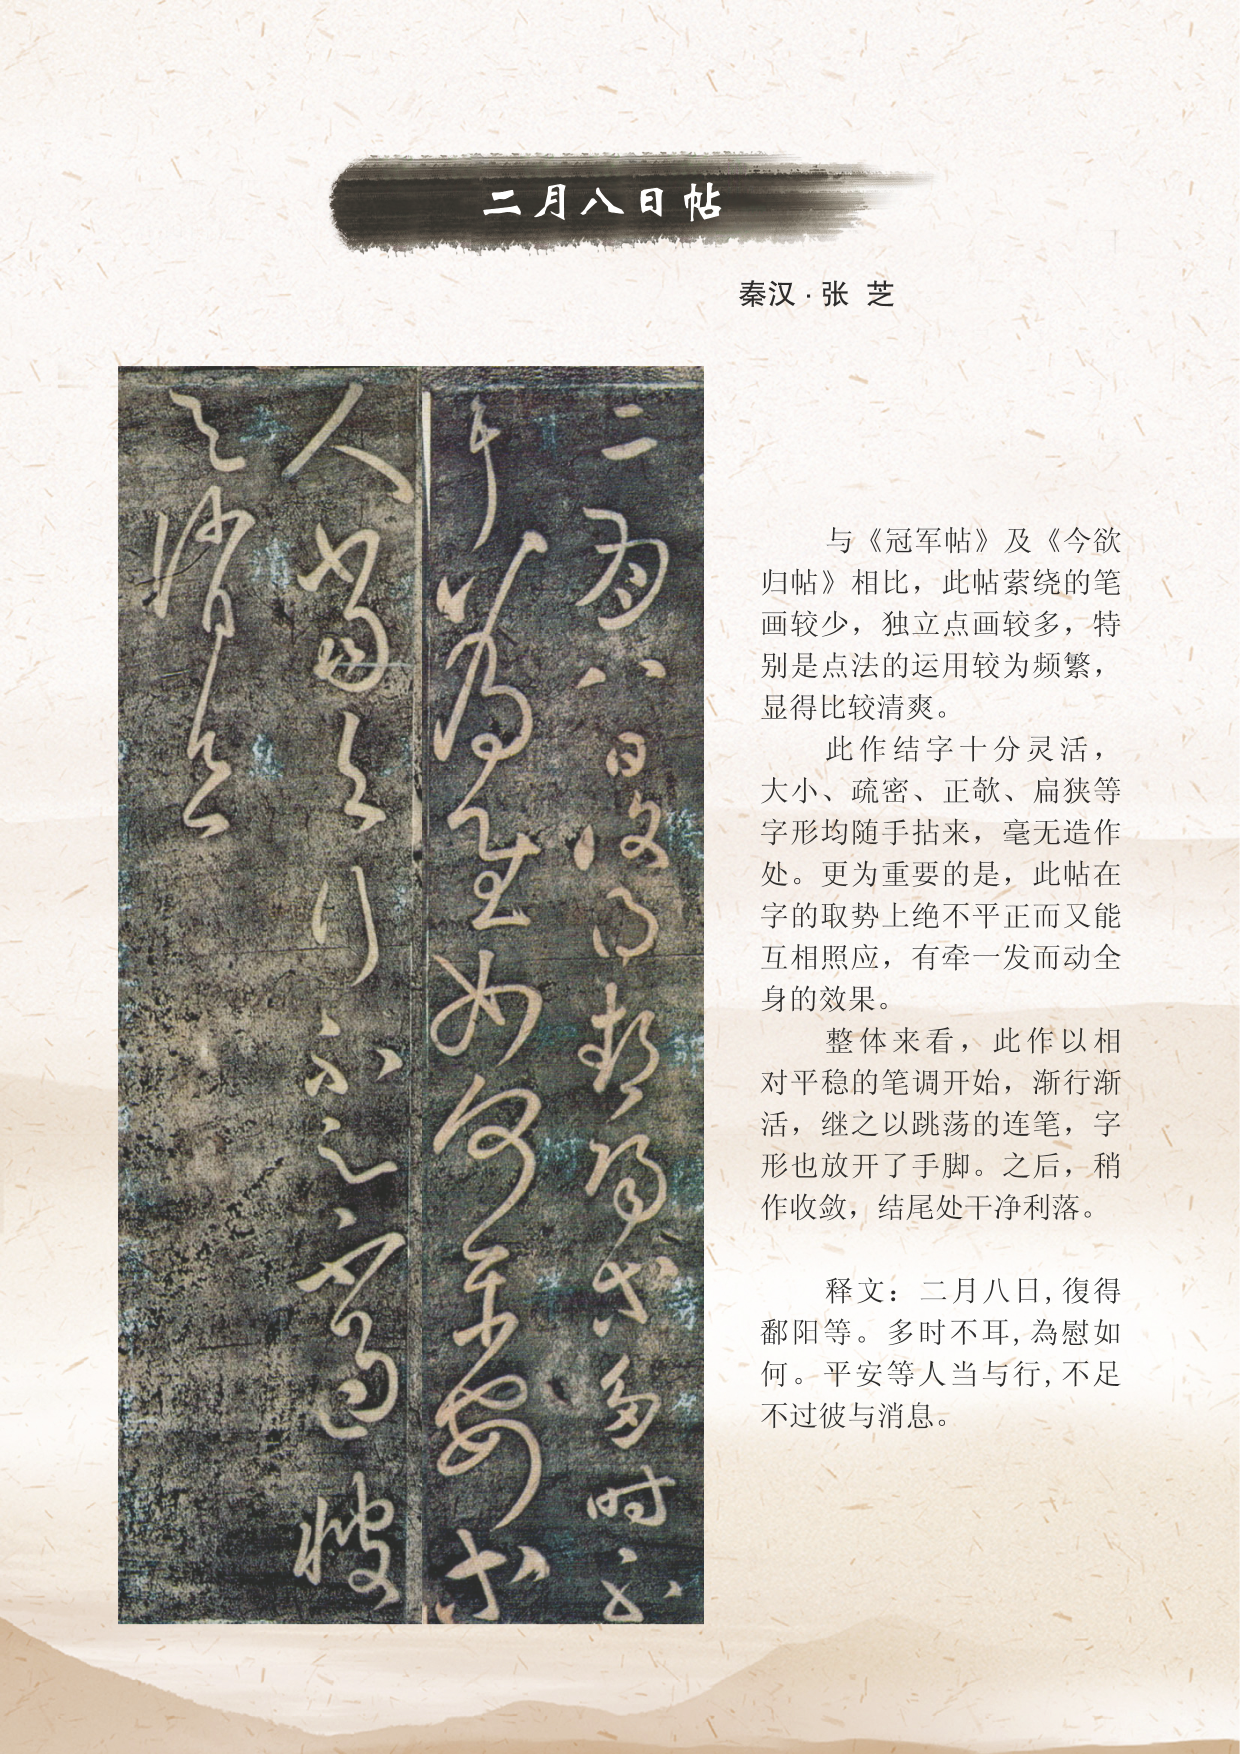 二月八日帖
秦汉·张 芝
二月八日復得鄱阳等多时不
耳為慰如何平安等
人当与行不足不过彼
与消息
与《冠军帖》及《今欲
归帖》相比，此帖萦绕的笔
画较少，独立点画较多，特
别是点法的运用较为频繁，
显得比较清爽。
此作结字十分灵活，
大小、疏密、正欹、扁狭等
字形均随手拈来，毫无造作
处。更为重要的是，此帖在
字的取势上绝不平正而又能
互相照应，有牵一发而动全
身的效果。
整体来看，此作以相
对平稳的笔调开始，渐行渐
活，继之以跳荡的连笔，字
形也放开了手脚。之后，稍
作收敛，结尾处干净利落。
释文：二月八日,復得
鄱阳等。多时不耳,為慰如
何。平安等人当与行,不足
不过彼与消息。